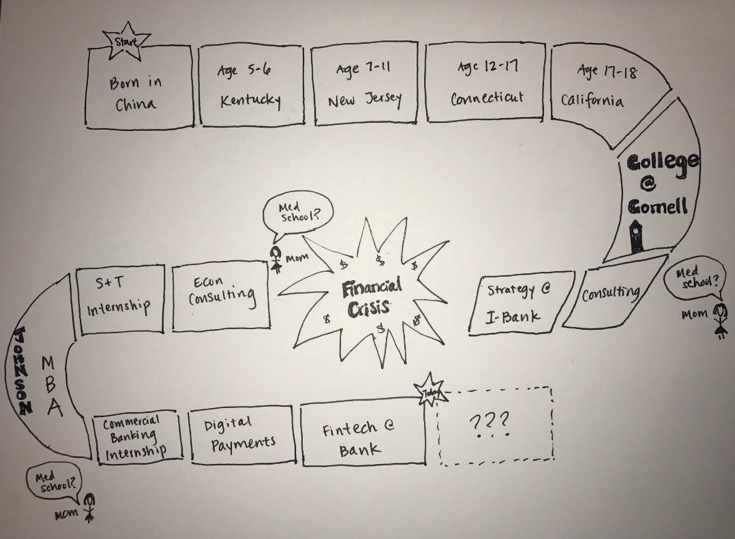 Start
Born in
China
Age 5-6
Kentucky
Age 7-11
New Jersey
Age 12-17
Connecticut
Age 17-18
California
College
@
Cornell
Med
school?
Mom
Consulting
Strategy @
I-Bank
$ $ $
Financial
Crisis
$ $ $
Med
school?
Mom
Econ
Consulting
S+T
Internship
JOHNSON
MBA
Med
school?
Mom
Commercial
Banking
Internship
Digital
Payments
Fintech @
Bank
Today
???